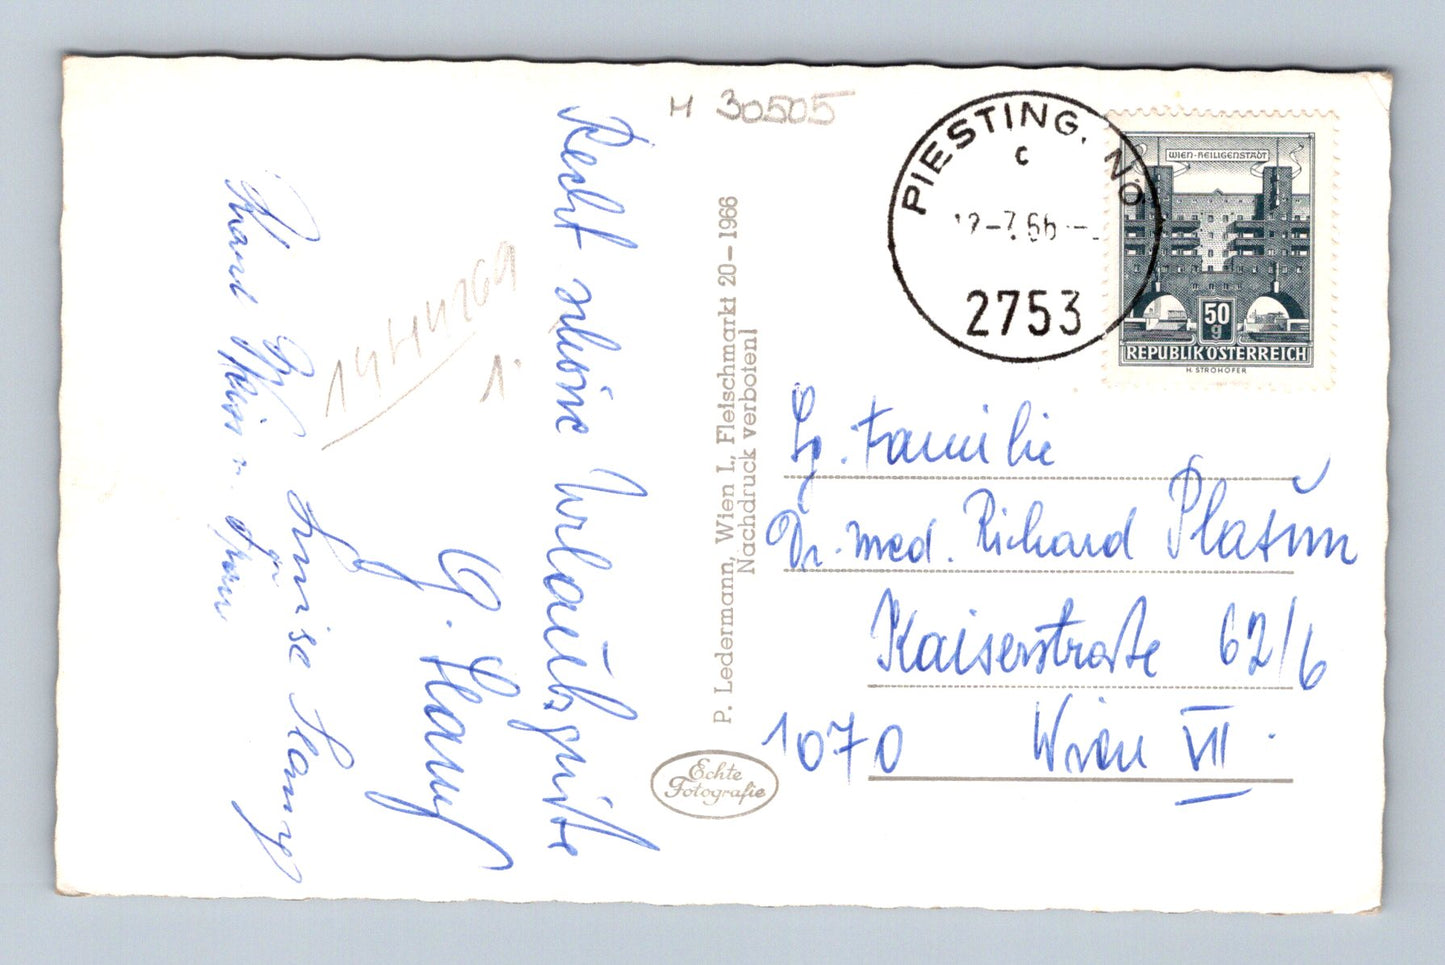 H 30505
Recht schöne Urlaubsgrüße
G.
Luise
14HU269
1.
P. Ledermann, Wien I., Fleischmarkt 20 – 1966
Nachdruck verboten!
Echte
Fotografie
PIESTING, NÖ
c
12-7.66
2753
WIEN-HEILIGENSTADT
50
g
REPUBLIK ÖSTERREICH
H. STROHOFER
Familie
Dr. med. Richard
Kaiserstraße 62/6
1070 Wien VII.